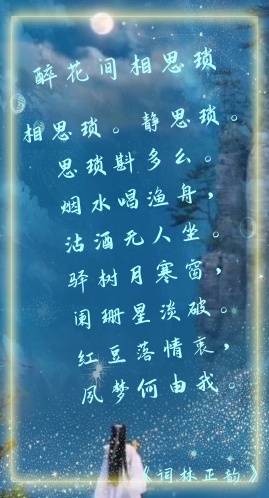 醉花间相思琐
相思琐。静思琐。
思琐斟多么。
烟水唱渔舟，
沽酒无人坐。
驿树月寒窗，
阑珊星淡破。
红豆落情衷，
夙梦何由我。
《词林正韵》